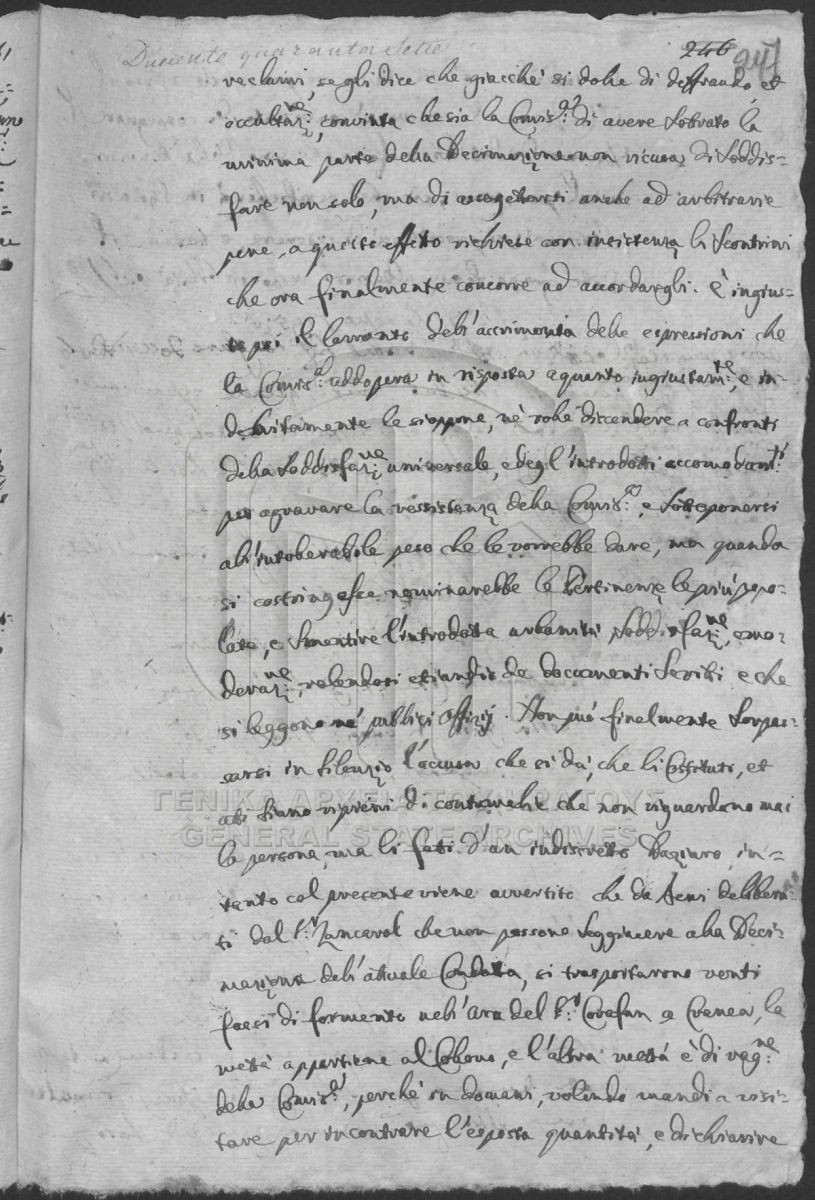 Ducento quaranta Sette
246 247
reclami, se gli dice che giacchè si dolse di deffraudo et
occultaz:ne, convinta che sia la Comis:a di avere sotrato la
minima parte della Decimazione non ricusa di soddis=
fare non solo, ma di assogettarsi anche ad arbitrarie
pene, a questo effetto richiese con insistenza li scontrini
che ora finalmente concorre ad accordargli. è ingius=
to poi il lamento dell'accrimonia delle espressioni che
la Comis:a addopera in risposta a quanto ingiustam:te, e in=
debitamente le si oppone, nè vole discendere a confronti
della soddisfaz:ne universale, e degl'introdotti accomodam:ti
per agravare la ressistenza della Comis:a, e sottoponersi
all'intolerabile peso che le vorrebbe dare, ma quando
si costringesse nominarebbe le Pertinenze le più popo=
late, e smentire l'introdotta urbanità soddisfaz:ne, e mo=
deraz:ne, valendosi etiandio de documenti scritti e che
si leggono ne' publici Offizij. Non può finalmente sorpas=
sarsi in silenzio l'accusa che si dà, che li Costituti, et
atti siano ripieni di contumelie che non riguardano mai
la persona, ma li fatti d'un indiscretto Daziaro, in=
tanto col presente viene avvertito che da semi delibera=
ti dal S:r Zancarol che non possono soggiacere alla Deci=
mazione dell'attuale Condotta, si trasportarono venti
di formento nell'Ara del S:r Corafan a Cranea, la
mettà appartiene al Colono, e l'altra mettà è di rag:ne
della Comis:a, perchè in domani, volendo mandi a visi=
tare per incontrare l'esposta quantità, e dichiarire
ΓΕΝΙΚΑ ΑΡΧΕΙΑ ΤΟΥ ΚΡΑΤΟΥΣ
GENERAL STATE ARCHIVES